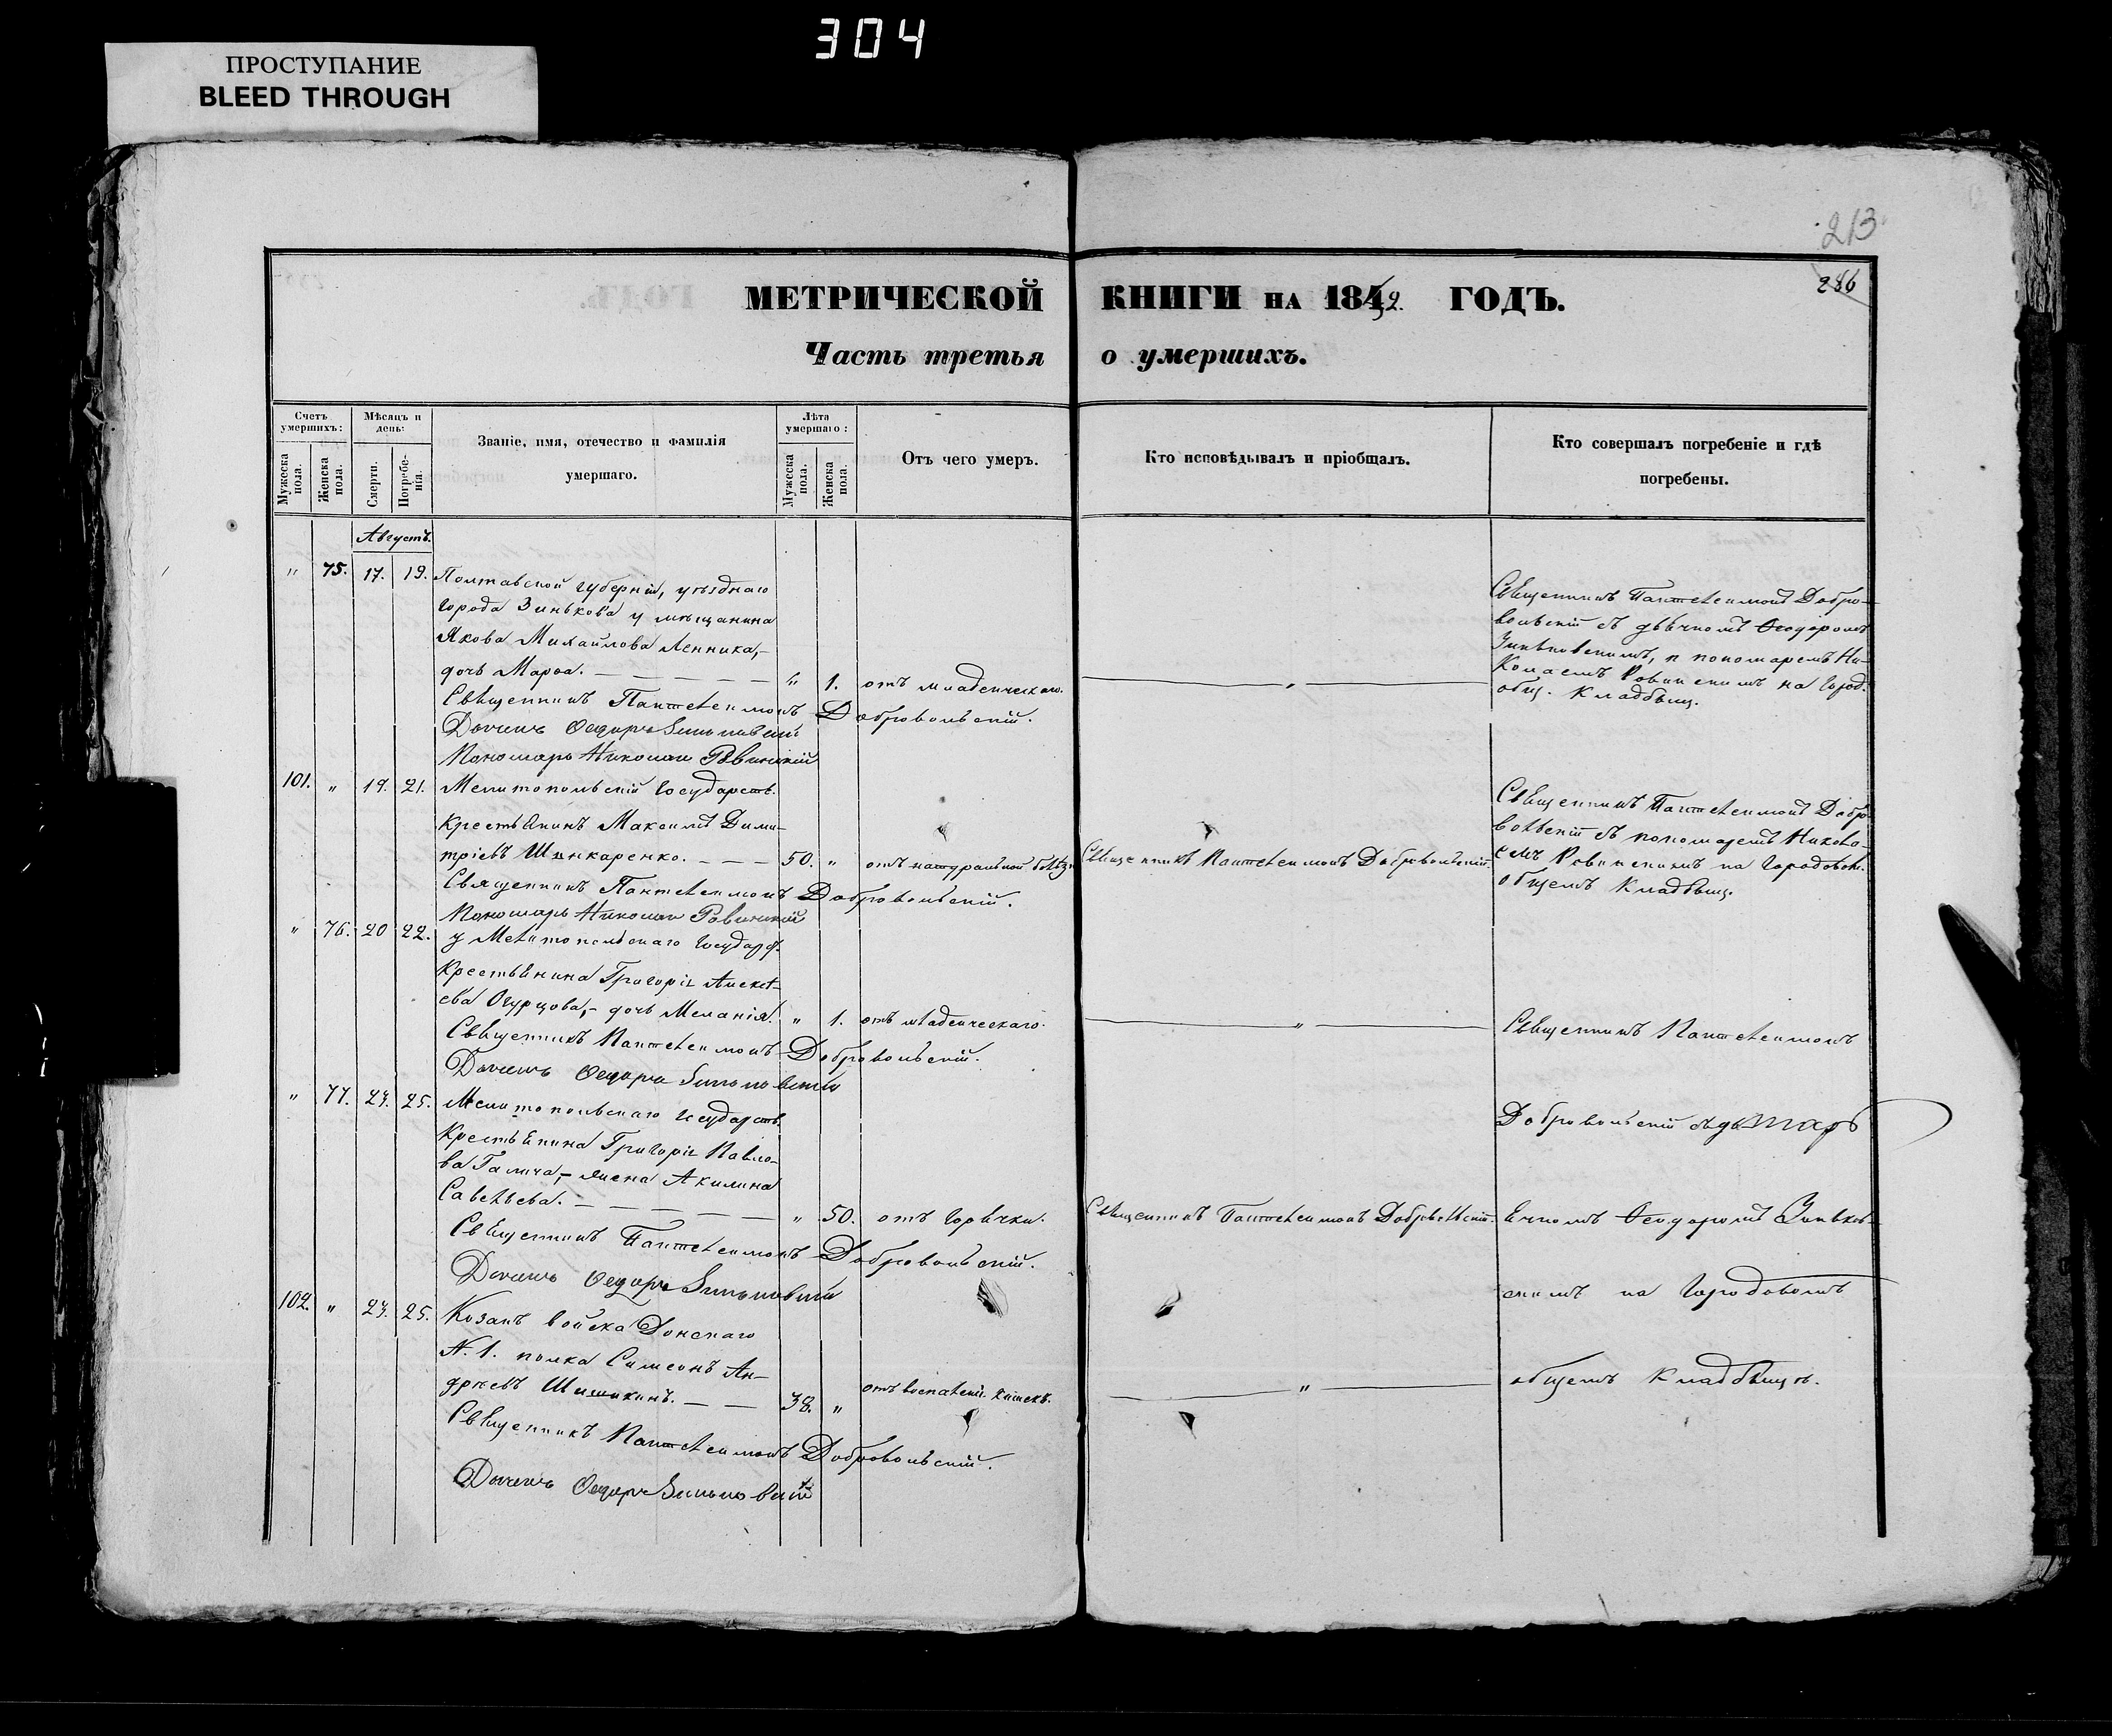 304
ПРОСТУПАНИЕ
BLEED THROUGH
213
286
МЕТРИЧЕСКОЙ КНИГИ НА 1852. ГОДЪ.
Часть третья о умершихъ.
Счетъ умершихъ:
Мужеска пола.
Женска пола.
Мѣсяцъ и день:
Смерти.
Погребенія.
Званіе, имя, отечество и фамилія
умершаго.
Лѣта умершаго:
Мужеска пола.
Женска пола.
Отъ чего умеръ.
Кто исповѣдывалъ и пріобщалъ.
Кто совершалъ погребеніе и гдѣ
погребены.
Августъ.
" 75. 17. 19. Полтавской губерніи, уѣзднаго
города Зинькова у мѣщанина
Якова Михайлова Ленника,–
дочь Марѳа. — " 1. отъ младенческаго. — " —
Священникъ Пантелеимонъ Доброволь-
вольскій съ дьячкомъ Ѳеодоромъ
Зиньковскимъ, и пономаремъ Ни-
колаемъ Ровинскимъ на город.
общ. кладбищ.
Священникъ Пантелеимонъ Добровольскій.
Дьячекъ Ѳедоръ Зиньковскій
Пономарь Николай Ровинский
101. " 19. 21. Мелитопольскій Государств.
крестьянинъ Максимъ Дими-
тріевъ Шинкаренко. — 50. " отъ натуральной болѣзн. Священникъ Пантелеимонъ Добровольскій.
Священникъ Пантелеимонъ Добро-
вольскій съ пономаремъ Никола-
емъ Ровинскимъ на городовом.
общемъ кладбищ.
Священникъ Пантелеимонъ Добровольскій.
Пономарь Николай Ровинский
" 76. 20 22. у Мелитопольскаго Государст.
крестьянина Григорія Алексѣ-
ева Огурцова,– дочь Меланія. " 1. отъ младенческаго. — " —
Священникъ Пантелеимонъ Добровольскій.
Дьячекъ Ѳедоръ Зиньковскій
" 77. 24. 25. Мелитопольскаго Государств.
крестьянина Григорія Павло-
ва Галича,– жена Акилина
Савельева. — " 50. отъ горячки. Священникъ Пантелеимонъ Добровольскій.
Священникъ Пантелеимонъ Добровольскій.
Дьячекъ Ѳедоръ Зиньковскій
102. " 24. 25. Козакъ войска Донскаго
N. 1. полка Симеонъ Ан-
дреевъ Шишкинъ. — 38. " отъ воспаленія кишекъ. — " —
Священникъ Пантелеимонъ Добровольскій.
Дьячекъ Ѳедоръ Зиньковскій
Священникъ Пантелеимонъ
Добровольскій съ дь
ячкомъ Ѳеодоромъ Зиньков-
скимъ на городовомъ
общемъ кладбищѣ.